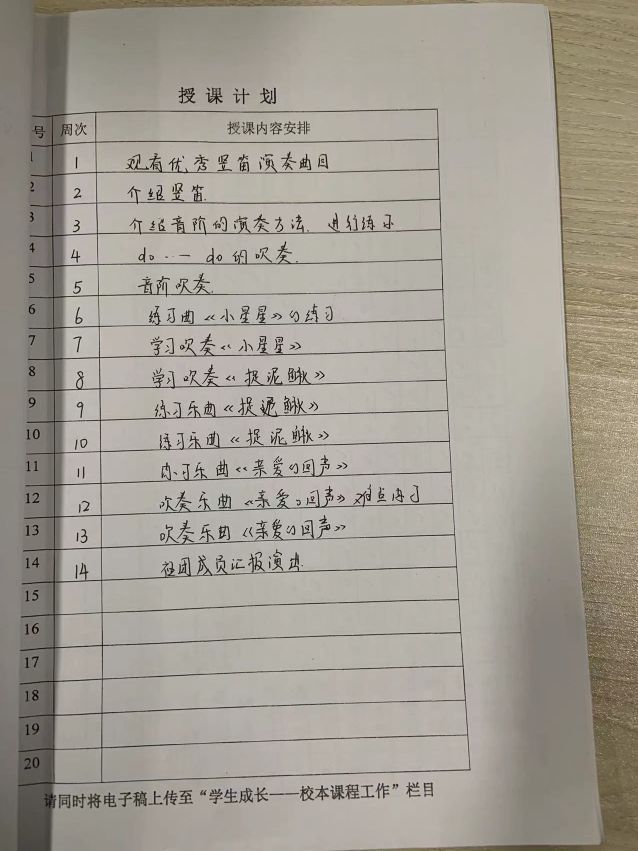 授课计划
号 周次 授课内容安排
1 1 观看优秀竖笛演奏曲目
2 2 介绍竖笛.
3 3 介绍音阶的演奏方法. 进行练习
4 4 do ..— do 的吹奏.
5 5 音阶吹奏.
6 6 练习曲《小星星》的练习
7 7 学习吹奏《小星星》
8 8 学习吹奏《捉泥鳅》
9 9 练习乐曲《捉泥鳅》
10 10 练习乐曲《捉泥鳅》
11 11 练习乐曲《亲爱的回声》
12 12 吹奏乐曲《亲爱的回声》难点练习
13 13 吹奏乐曲《亲爱的回声》
14 14 社团成员汇报演出.
15
16
17
18
19
20
请同时将电子稿上传至“学生成长——校本课程工作”栏目